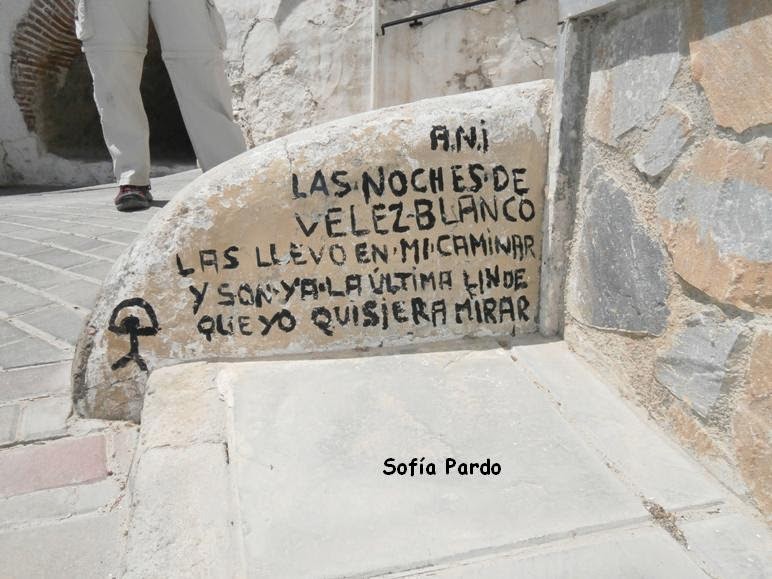 A.N.i
LAS·NOCHES·DE
VELEZ-BLANCO
LAS LLEVO EN·MI·CAMINAR
Y SON·YA·LA ÚLTIMA LINDE
QUE YO QUISIERA MIRAR
Sofía Pardo